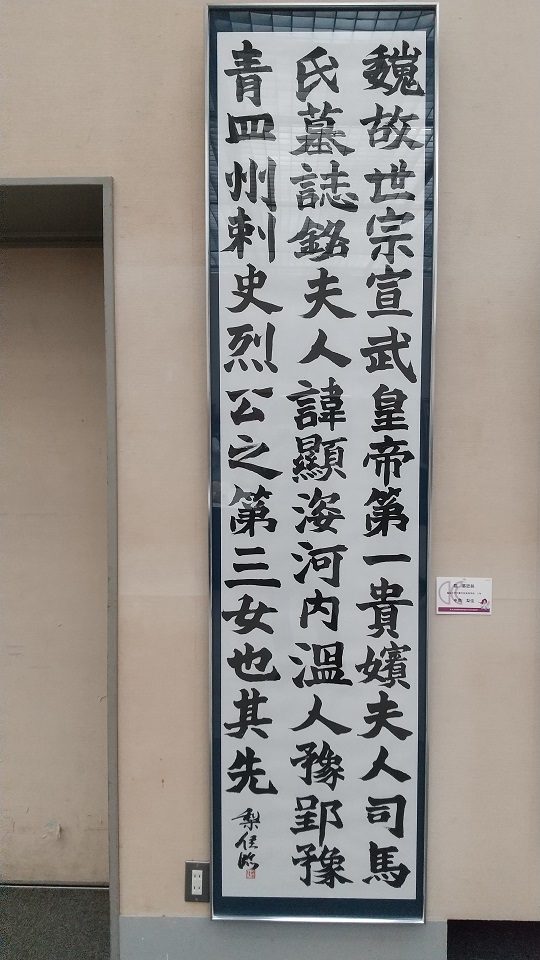 魏故世宗宣武皇帝第一貴嬪夫人司馬
氏墓誌銘夫人諱顯姿河内温人豫郢豫
青四州刺史烈公之第三女也其先
梨佳臨